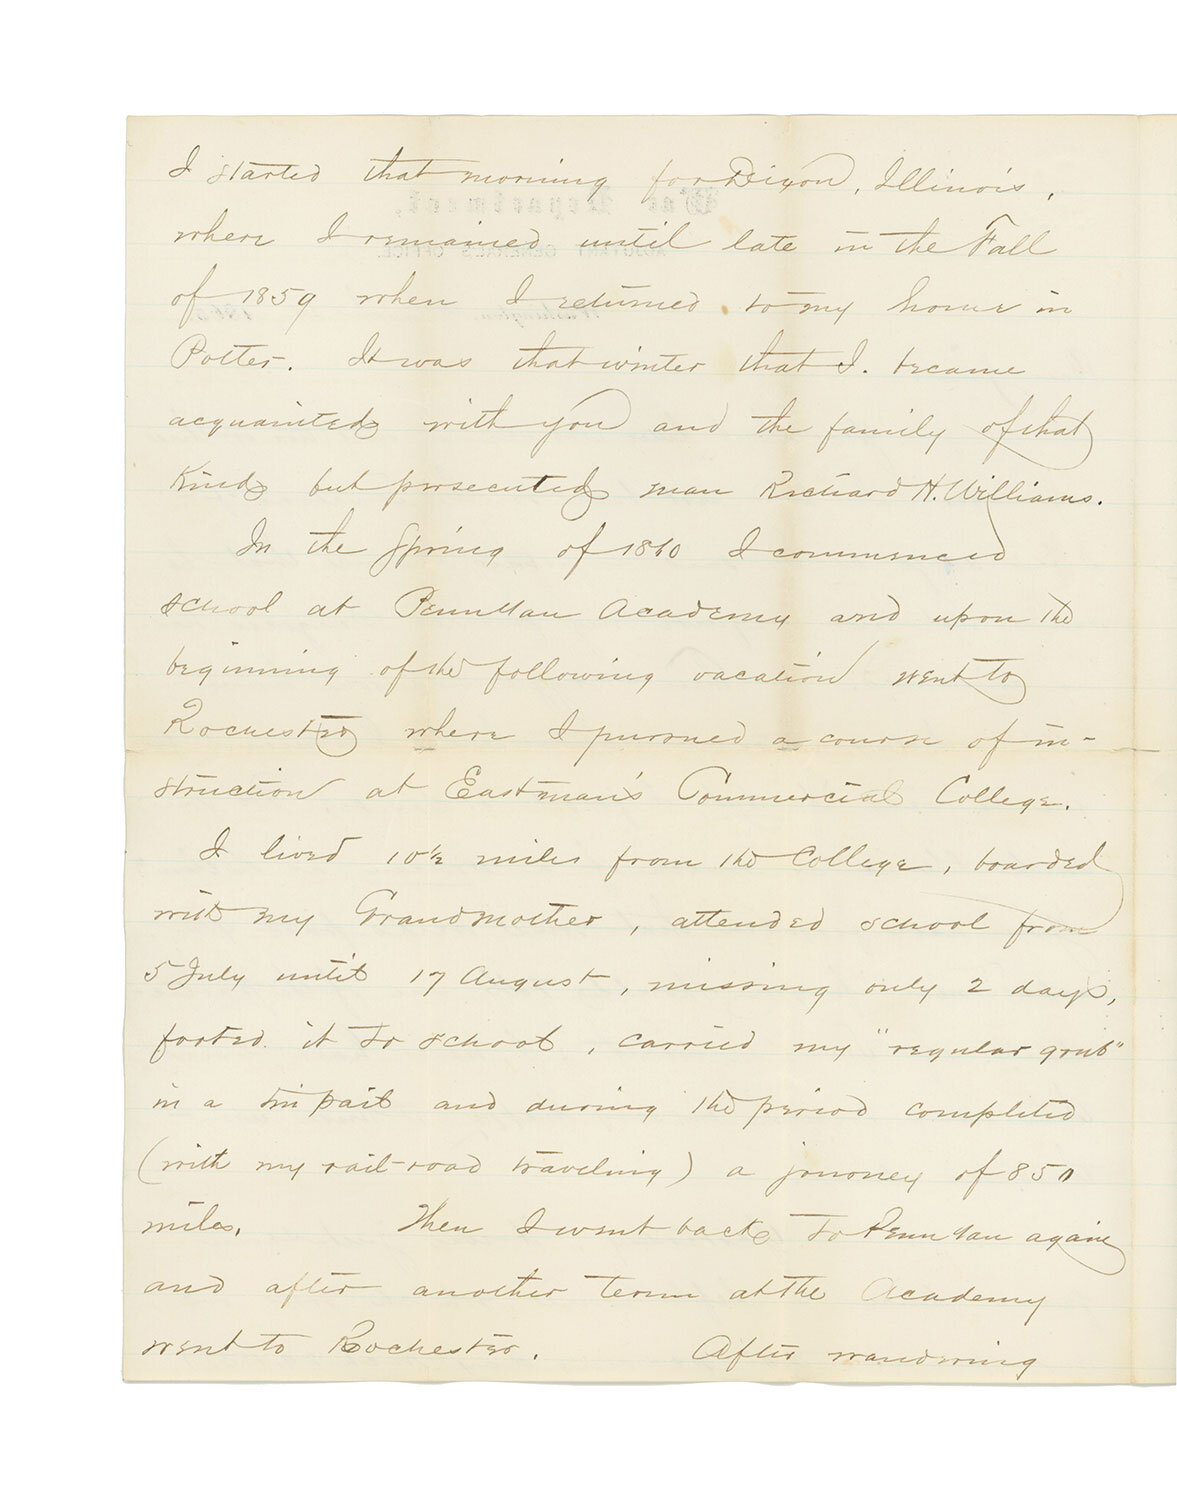 I started that morning for Dixon, Illinois,
where I remained until late in the Fall
of 1859 when I returned to my home in
Potter. It was that winter that I. became
acquainted with you and the family of that
kind but persecuted man Richard H. Williams.
In the Spring of 1860 I commenced
school at Penn Yan Academy and upon the
beginning of the following vacation went to
Rochester where I pursued a course of in-
struction at Eastman's Commercial College.
I lived 10½ miles from the College, boarded
with my Grandmother, attended school from
5 July until 17 August, missing only 2 days,
footed it to school, carried my "regular grub"
in a tin pail and during the period completed
(with my rail-road traveling) a journey of 850
miles. Then I went back to Penn Yan again
and after another term at the Academy
went to Rochester. After wandering
War Department,
ADJUTANT GENERAL'S OFFICE,
Washington